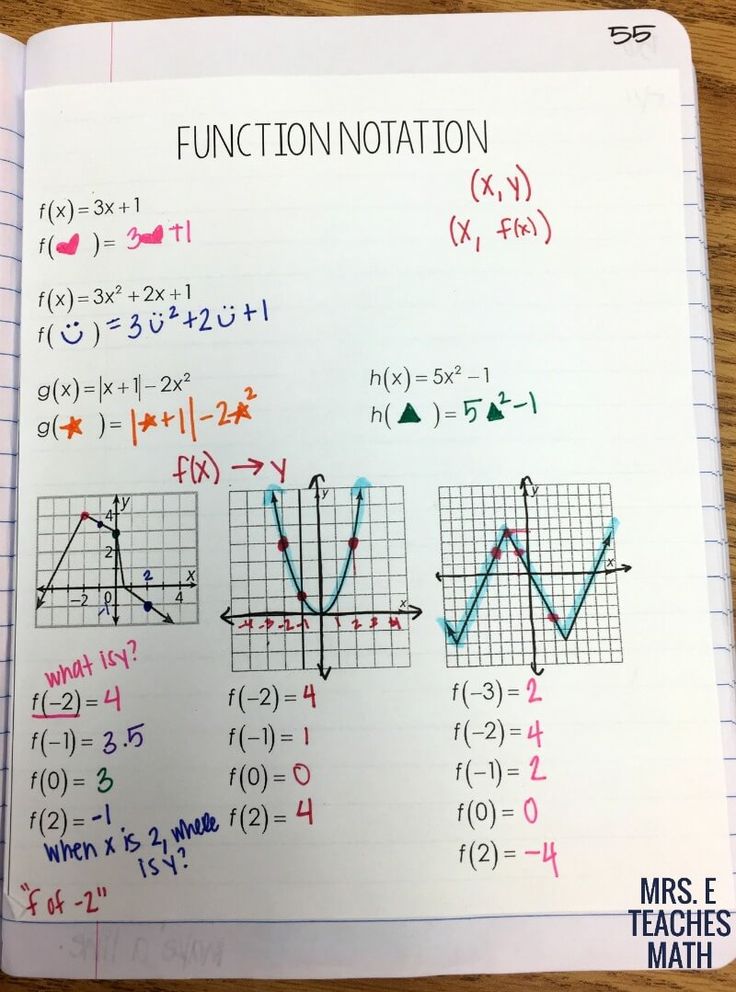 55
FUNCTION NOTATION
(x, y)
(x, f(x))
f(x) = 3x + 1
f(♥) = 3♥+1
f(x) = 3x² + 2x + 1
f(ü) = 3ü²+2ü+1
g(x) = |x + 1| − 2x²
g(★) = |★+1|−2★²
h(x) = 5x² − 1
h(▲) = 5▲²−1
f(x) → y
y
4
2
2
x
−2
0
4
-1
y
x
-4 -3 -2 -1 1 2 3 4
y
x
what is y?
f(−2) = 4
f(−1) = 3.5
f(0) = 3
f(2) = -1
when x is 2, where
is y?
"f of -2"
f(−2) = 4
f(−1) = 1
f(0) = 0
f(2) = 4
f(−3) = 2
f(−2) = 4
f(−1) = 2
f(0) = 0
f(2) = -4
MRS. E
TEACHES
MATH